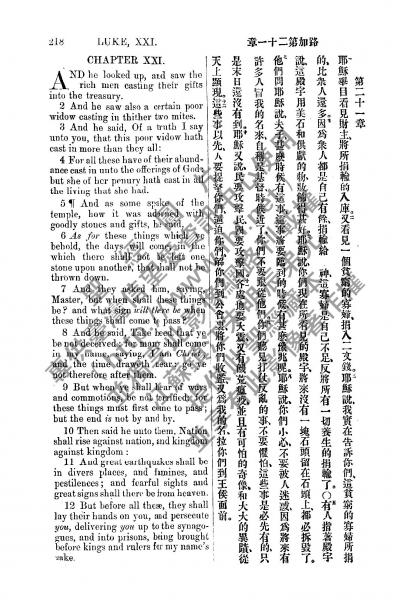 218
LUKE, XXI.
CHAPTER XXI.
AND he looked up, and saw the
rich men casting their gifts
into the treasury.
2 And he saw also a certain poor
widow casting in thither two mites.
3 And he said, Of a truth I say
unto you, that this poor widow hath
cast in more than they all:
4 For all these have of their abund-
ance cast in unto the offerings of God:
but she of her penury hath cast in all
the living that she had.
5 ¶ And as some spake of the
temple, how it was adorned with
goodly stones and gifts, he said,
6 As for these things which ye
behold, the days will come, in the
which there shall not be left one
stone upon another, that shall not be
thrown down.
7 And they asked him, saying,
Master, but when shall these things
be? and what sign will there be when
these things shall come to pass?
8 And he said, Take heed that ye
be not deceived: for many shall come
in my name, saying, I am Christ;
and the time draweth near: go ye
not therefore after them.
9 But when ye shall hear of wars
and commotions, be not terrified: for
these things must first come to pass;
but the end is not by and by.
10 Then said he unto them, Nation
shall rise against nation, and kingdom
against kingdom:
11 And great earthquakes shall be
in divers places, and famines, and
pestilences; and fearful sights and
great signs shall there be from heaven.
12 But before all these, they shall
lay their hands on you, and persecute
you, delivering you up to the synago-
gues, and into prisons, being brought
before kings and rulers for my name's
sake.
章一十二第加路
第二十一章
耶穌舉目看見財主將所捐輸的入庫。又看見一個貧窮的寡婦、捐入二文錢。耶穌說、我實在告訴你們、這貧窮的寡婦所捐
的、比衆人還多。因爲衆人都是自己有餘、捐輸給 神、這寡婦是自己不足、反將所有一切養生的捐輸了。○有人指著殿宇
說、這殿宇用美石和供獻的物妝飾得甚好。耶穌說、你們現在所看見的殿宇、將來沒有一塊石頭留在石頭上、都必拆毀了。
他們問耶穌說、夫子、甚麽時候有這事、這事將要臨到的時候、有甚麽兆頭呢。耶穌說、你們小心、不要被人迷惑、因爲將來有
許多人冒我的名來、自稱是基督、時候近了、你們不要跟從他們。你們聽見打仗反亂的事、不要驚怕、這些事是必先有的、只
是末日還沒有到。耶穌又說、民要攻擊民、國要攻擊國、各處地要大震、又有饑荒瘟疫、並且有可怕的奇像、和大大的異蹟、從
天上顯現。這些事以先、人要捉拿你們、逼迫你們、解你們到公會裏、將你們收監、又爲我的名、拉你們到王侯面前。